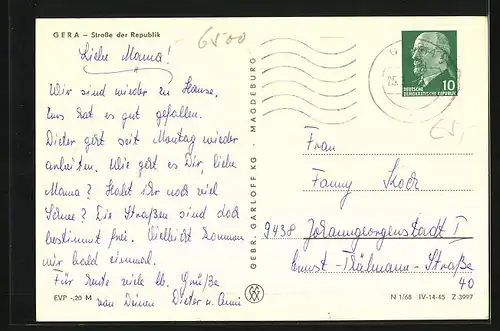 GERA – Straße der Republik
6500
Liebe Mama!
Wir sind wieder zu Hause.
Uns hat es gut gefallen.
Dieter geht seit Montag wieder
arbeiten. Wie geht es Dir, liebe
Mama? Habt ihr noch viel
Schnee? Die Straßen sind doch
bestimmt frei. Vielleicht kommen
wir bald einmal.
Für heute viele lb. Grüße
von Deinen Dieter u. Anni
EVP -,20 M
GEBR. GARLOFF KG · MAGDEBURG
DEUTSCHE
DEMOKRATISCHE REPUBLIK
10
G
25.
65,-
Frau
Fanny
9438 Johanngeorgenstadt I
Ernst-Thälmann-Straße
40
N 1/68 IV-14-45 Z 3997